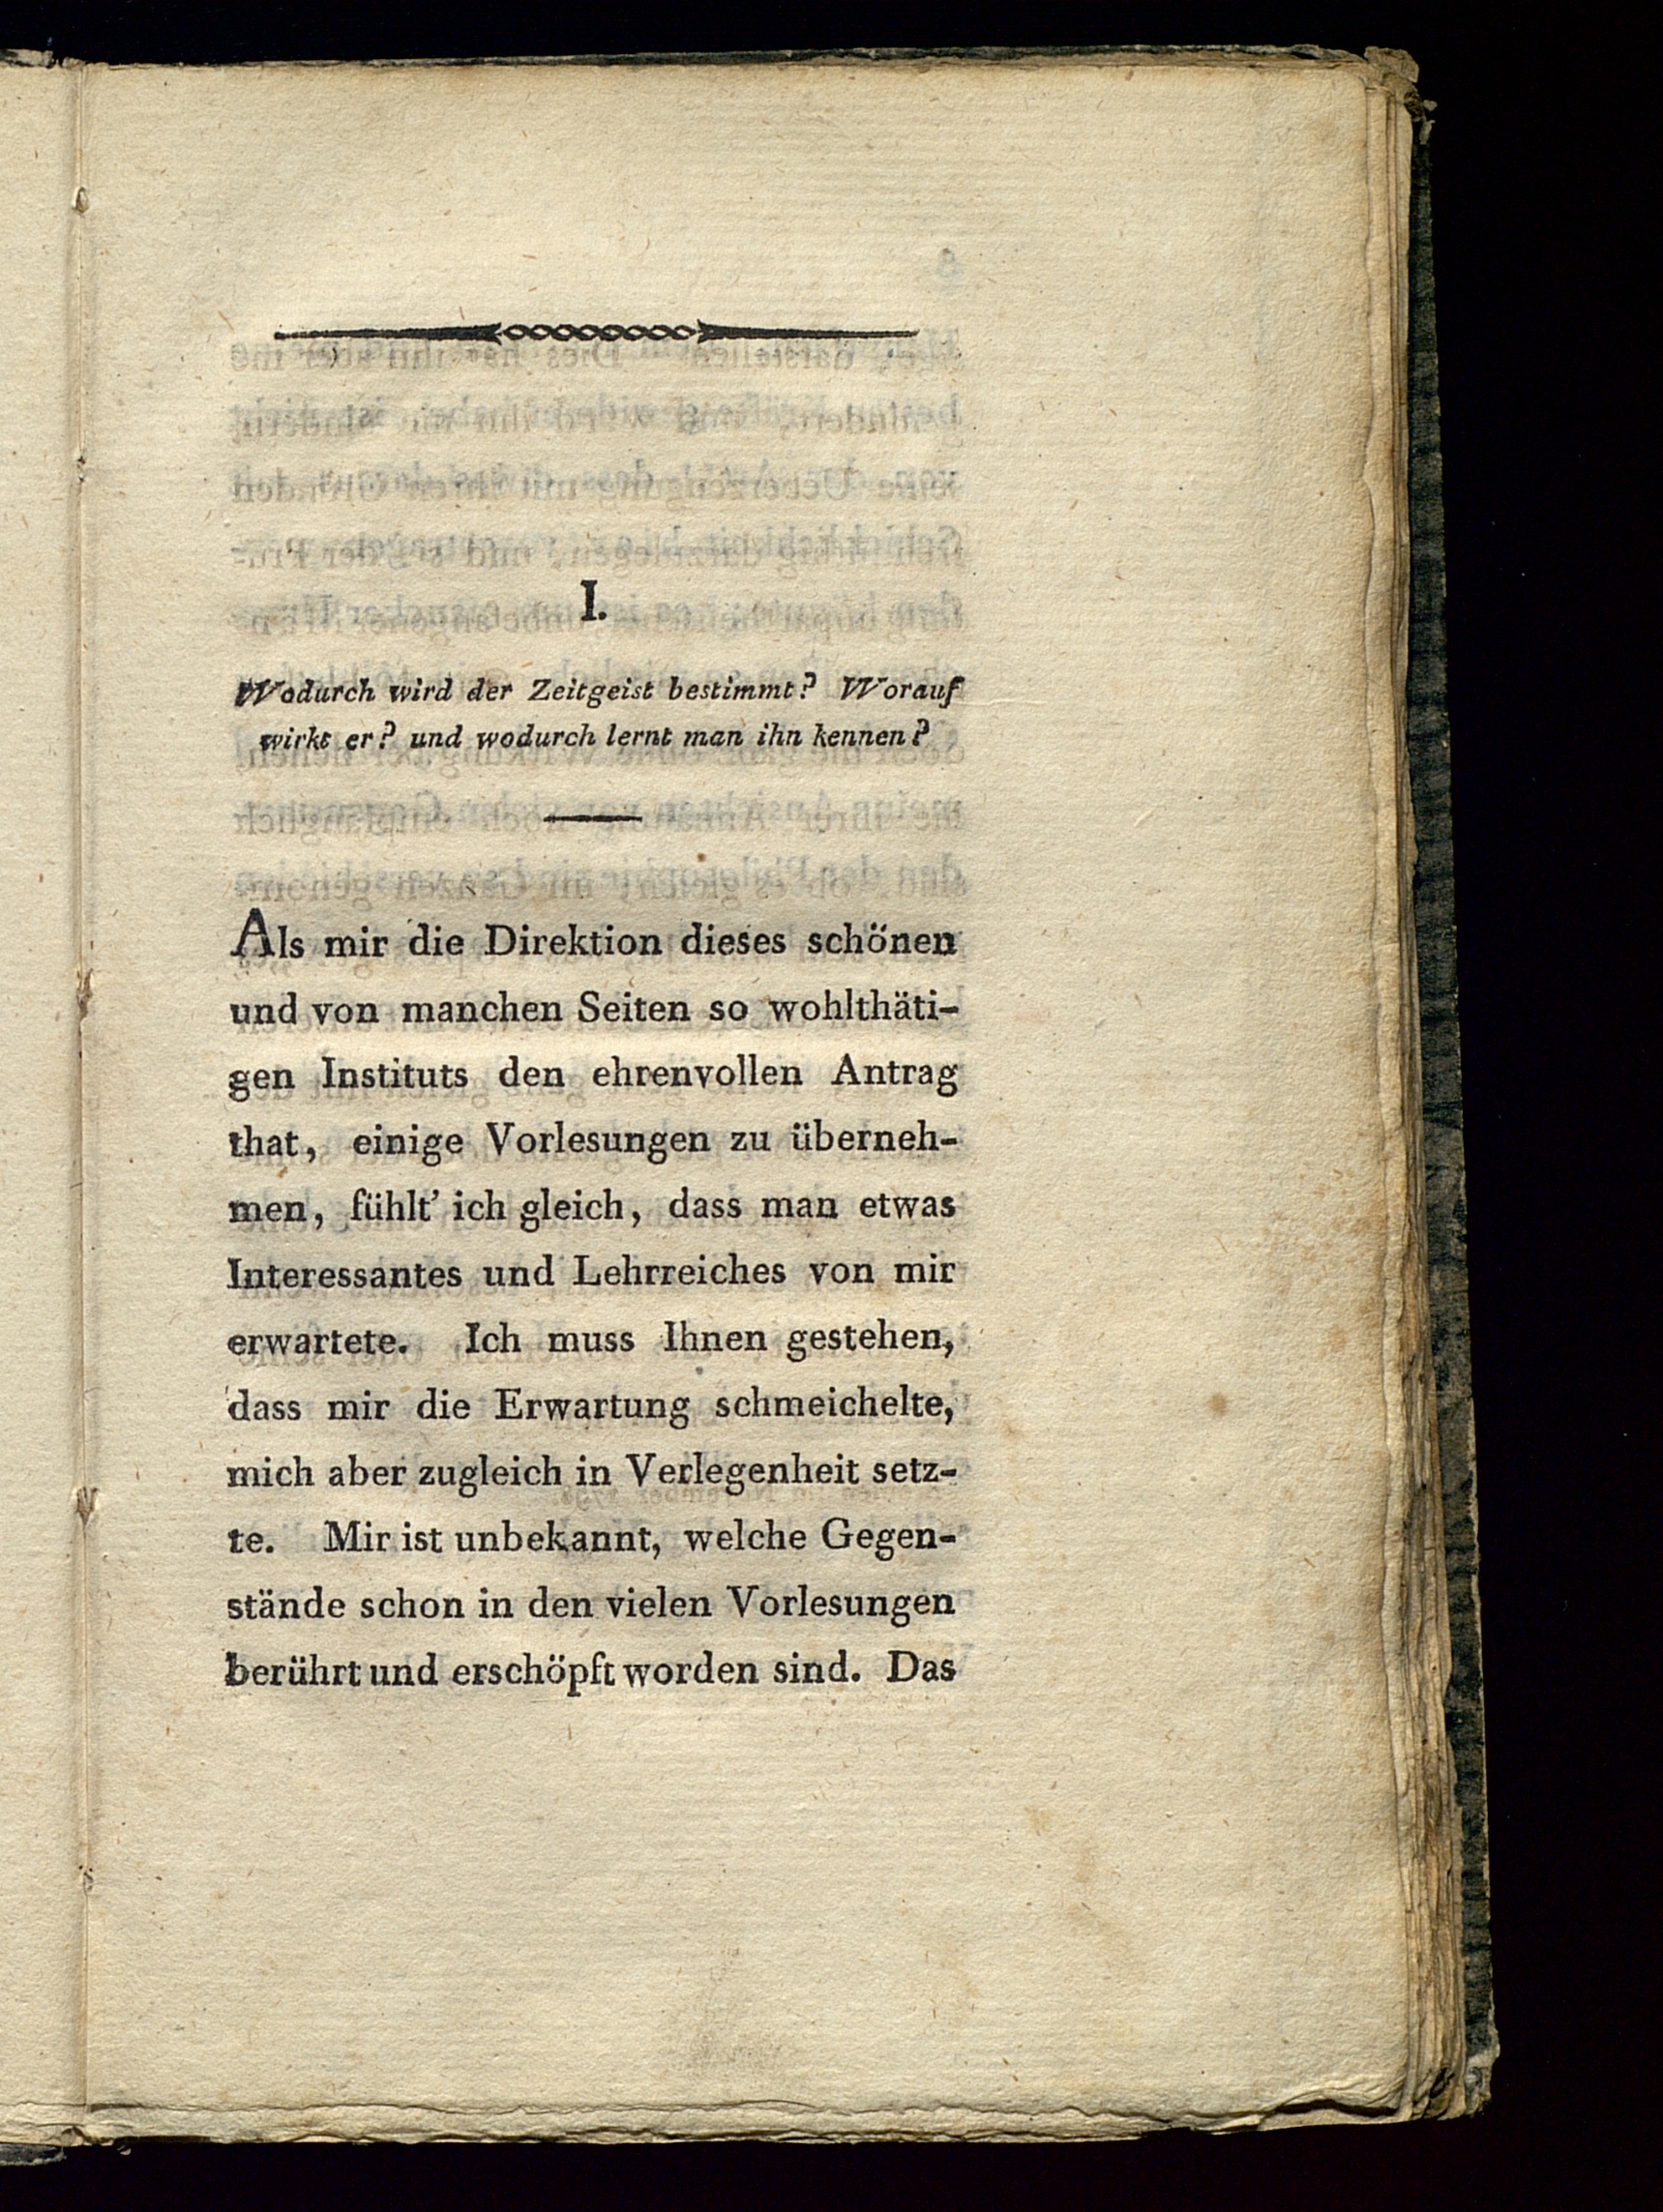 I.
Wodurch wird der Zeitgeist bestimmt? Worauf
wirkt er? und wodurch lernt man ihn kennen?
Als mir die Direktion dieses schönen
und von manchen Seiten so wohlthäti-
gen Instituts den ehrenvollen Antrag
that, einige Vorlesungen zu überneh-
men, fühlt' ich gleich, dass man etwas
Interessantes und Lehrreiches von mir
erwartete. Ich muss Ihnen gestehen,
dass mir die Erwartung schmeichelte,
mich aber zugleich in Verlegenheit setz-
te. Mir ist unbekannt, welche Gegen-
stände schon in den vielen Vorlesungen
berührt und erschöpft worden sind. Das